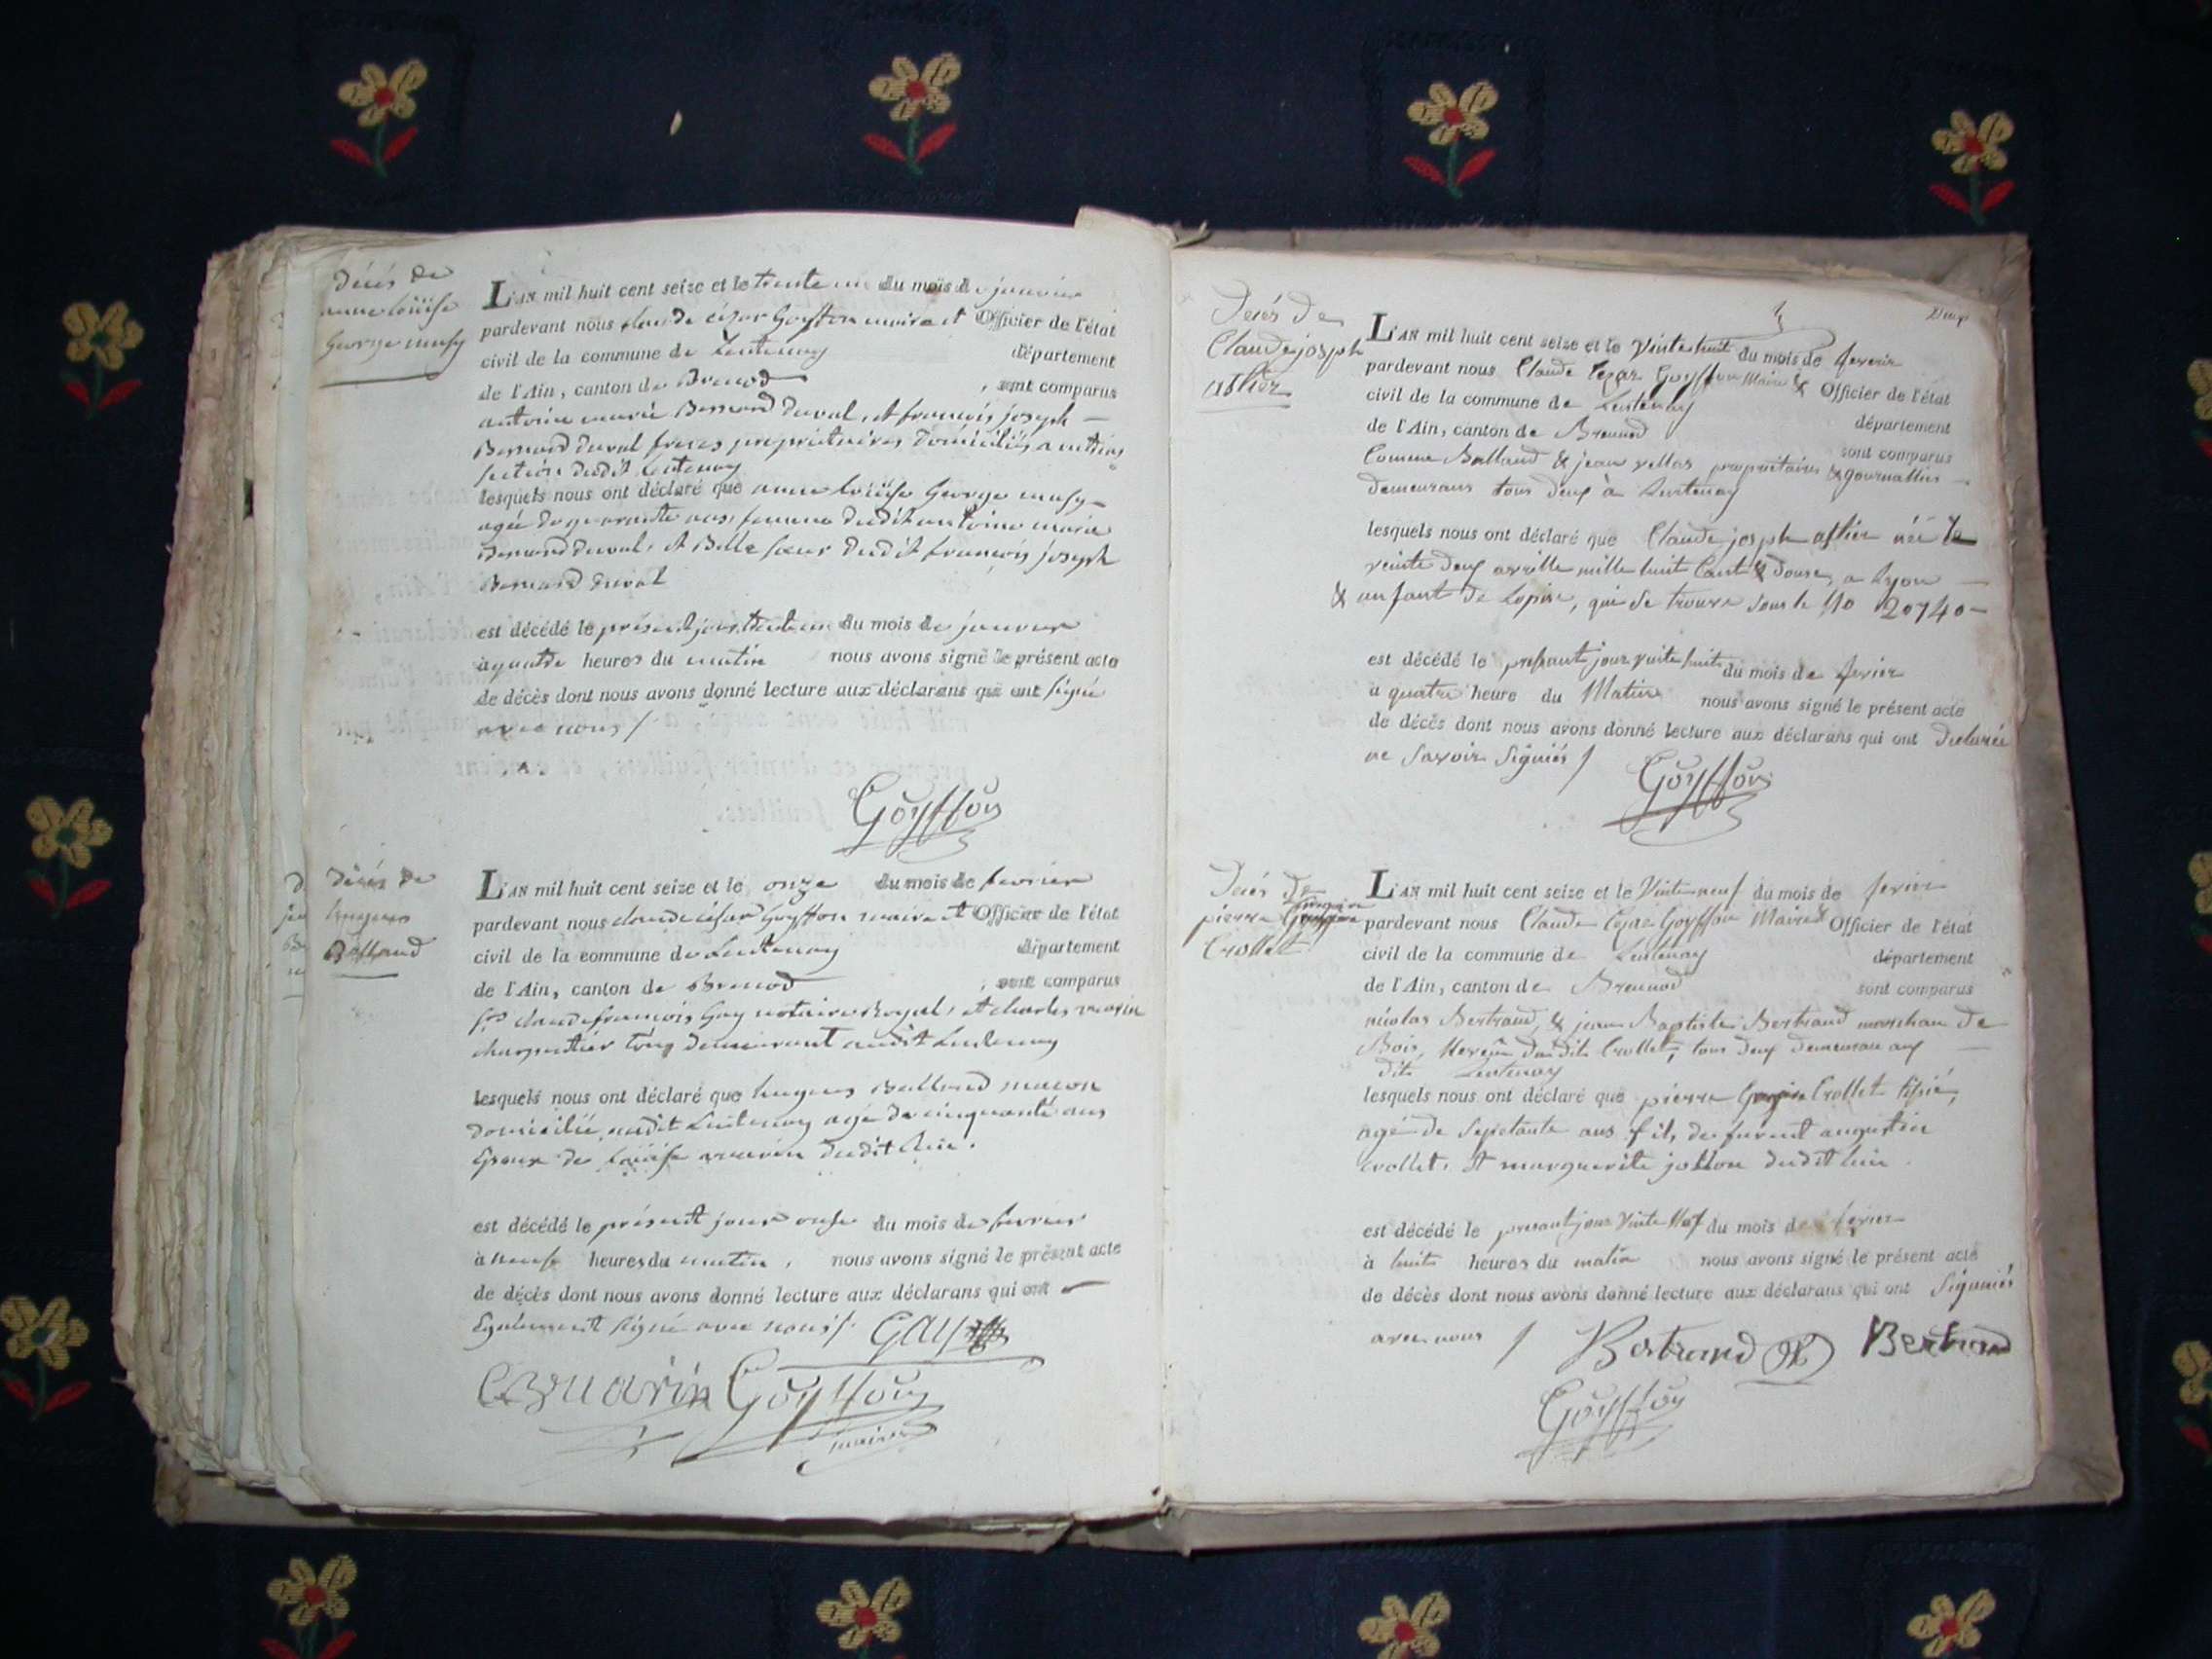 Décès de
anne loüise
George musy
L'AN mil huit cent seize et le trente un du mois de janvier
pardevant nous claude césar Goyffon maire et Officier de l'état
civil de la commune de Lentenay département
de l'Ain, canton de Brenod, sont comparus
antoine marie Bernard duval, et françois joseph
Bernard duval freres propriétaires, domiciliés a
section dudit Lentenay
lesquels nous ont déclaré que anne loüise George musy
agée de quarante ans, femme dudit antoine marie
Bernard duval, et Belle sœur dudit françois joseph
Bernard duval
est décédé le présent jour trente un du mois de janvier
à quatre heures du matin nous avons signé le présent acte
de décès dont nous avons donné lecture aux déclarans qui ont signé
avec nous /
Goyffon
Décès de
hugues
Balland
L'AN mil huit cent seize et le onze du mois de fevrier
pardevant nous claude césar Goyffon maire et Officier de l'état
civil de la commune de Lentenay département
de l'Ain, canton de Brenod, sont comparus
Sr claude françois Gay notaire Royal, et charles marin
charpentier tous demeurant audit Lentenay
lesquels nous ont déclaré que hugues Balland macon
domicilié audit Lentenay agé de cinquante ans
Epoux de Loüise marin dudit lieu.
est décédé le présent jour onse du mois de fevrier
à heures du matin, nous avons signé le présent acte
de décès dont nous avons donné lecture aux déclarans qui ont
Egalement signé avec nous /. GAY
marin Goyffon
maire
Decés De
Claude joseph
L'AN mil huit cent seize et le Vintehuit du mois de fevrier
pardevant nous Claude Cezar Goyffon Maire & Officier de l'état
civil de la commune de Lentenay département
de l'Ain, canton de Brenod sont comparus
Comme Balland & jean vellas propriétaires &
Demeurans tous deux à Lentenay
lesquels nous ont déclaré que Claude joseph néé le
veinte deux avrille mille huit Cant & Douse, a Lyon
& anfant de Lopise, qui se trouve sous le No 20740
est décédé le present jour vinte huit du mois de fevrier
à quatre heure du Matin nous avons signé le présent acte
de décès dont nous avons donné lecture aux déclarans qui ont Declarée
ne Savoir Signiés /
Goyffon
Decés De
pierre
Crollet
L'AN mil huit cent seize et le Vinteneuf du mois de fevrier
pardevant nous Claude Cezar Goyffon Maire & Officier de l'état
civil de la commune de Lentenay département
de l'Ain, canton de Brenod sont comparus
nicolas Bertrand, & jean Baptiste Bertrand marchan de
Bois, Neveu dudit Crollet, tous deux demeuran aux
dit Lentenay
lesquels nous ont déclaré que pierre Crollet
agé de Septante ans fils de furent augustin
Crollet, et marguerite jollon dudit lieu.
est décédé le present jour Vinte Nef du mois de fevrier
à huit heures du matin nous avons signé le présent acte
de décès dont nous avons donné lecture aux déclarans qui ont Signiés
avec nous / Bertrand Bertrand
Goyffon